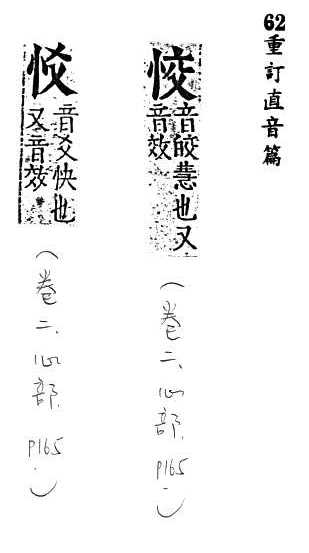 62重訂直音篇
恔
音皎慧也又
音效
㤊
音爻快也
又音效
(卷二、心部.P165.)
(卷二、心部.P165.)